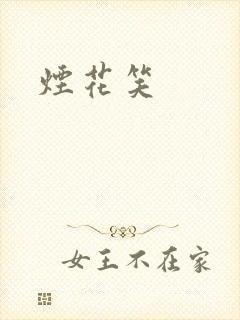 煙花笑
女王不在家